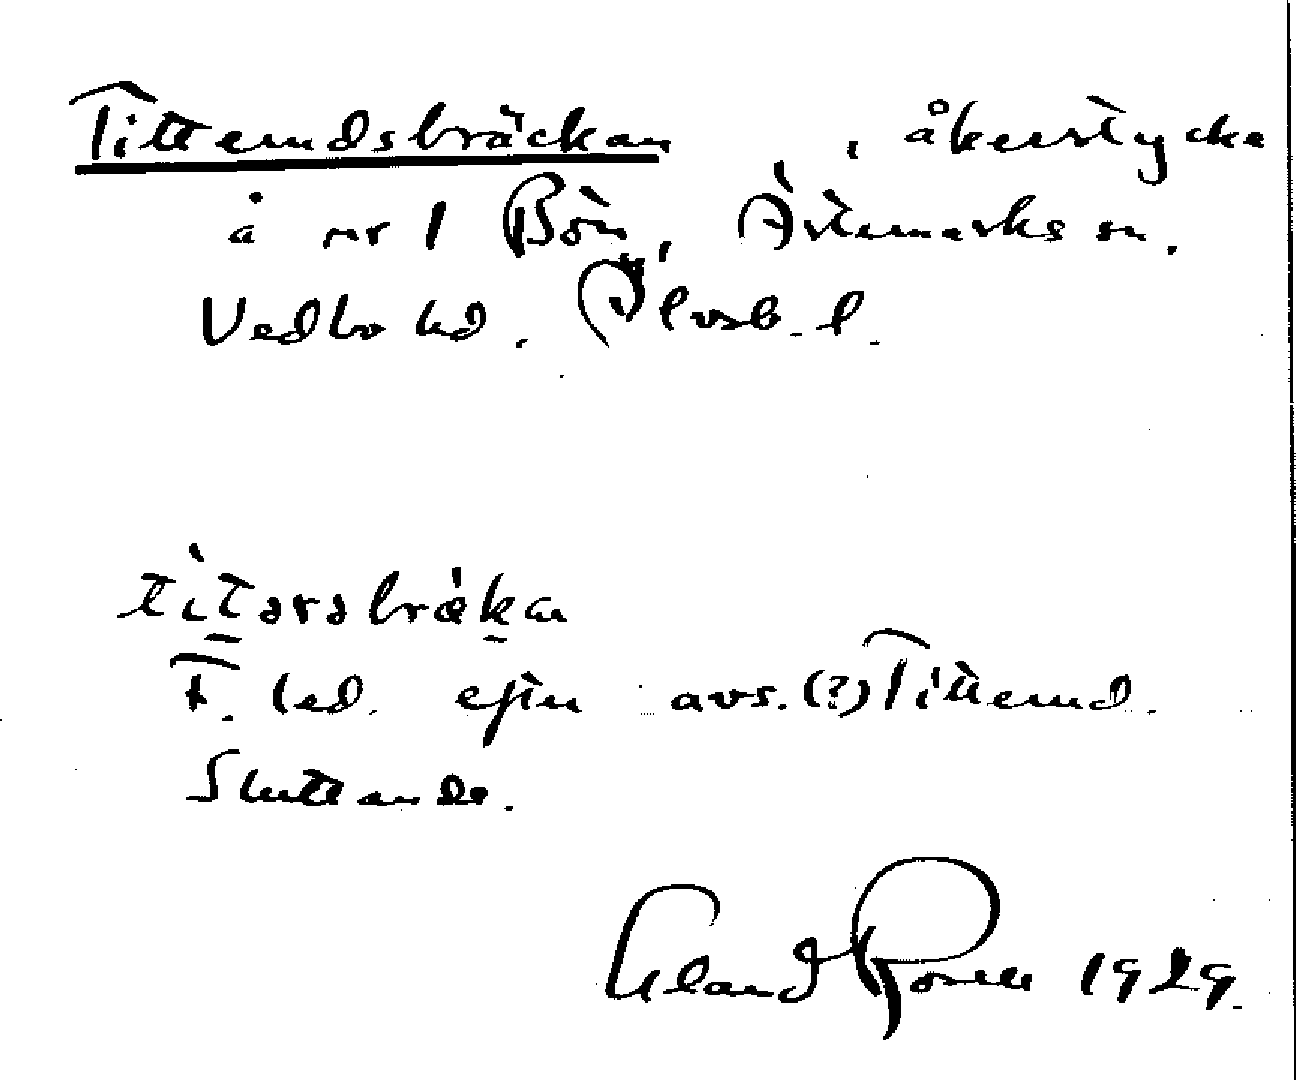 Tittemdsbräckan, åkerstycke
å nr 1 Bön, Ärtemarks sn.
Vedbo hd. Älvsb. l.
tìtərsbrǽkan
F. led. efter avs. (?) Tittemd.
Sluttande.
Erland Rosell 1929.